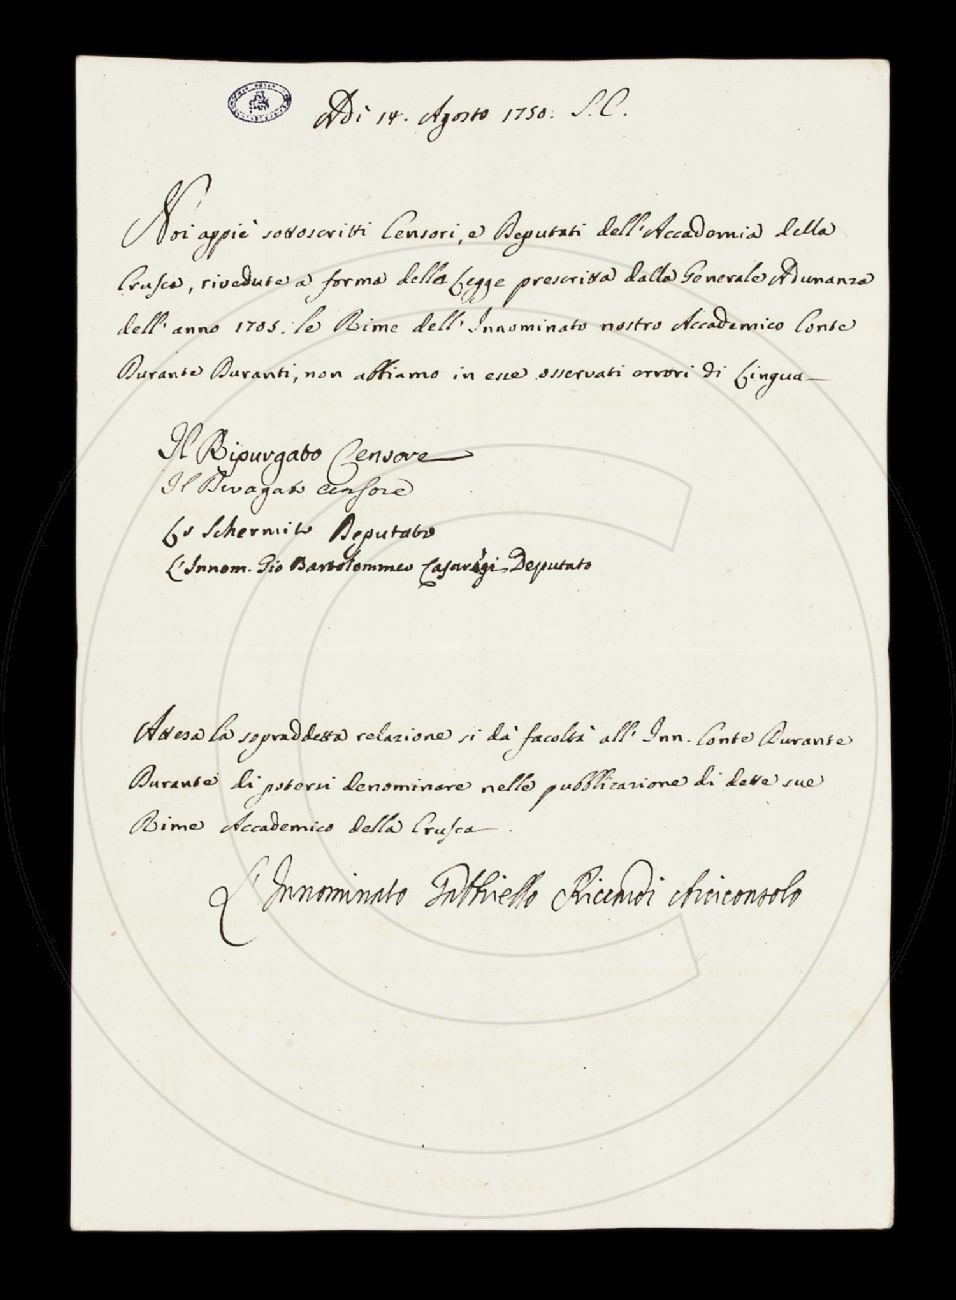 Adì 14. Agosto 1750. S. C.
Noi appiè sottoscritti Censori, e Deputati dell'Accademia della
Crusca, rivedute a forma della Legge prescritta dalla Generale Adunanza
dell'anno 1705. le Rime dell'Innominato nostro Accademico Conte
Durante Duranti, non abbiamo in esse osservati errori di Lingua
Il Ripurgato Censore
Il Divagato Censore
Lo Schermito Deputato
L'Innom. Gio Bartolommeo Casaregi Deputato
Attesa la sopraddetta relazione si dà facoltà all'Inn. Conte Durante
Durante di potersi denominare nella pubblicazione di dette sue
Rime Accademico della Crusca
L'Innominato Gabbriello Riccardi Arciconsolo